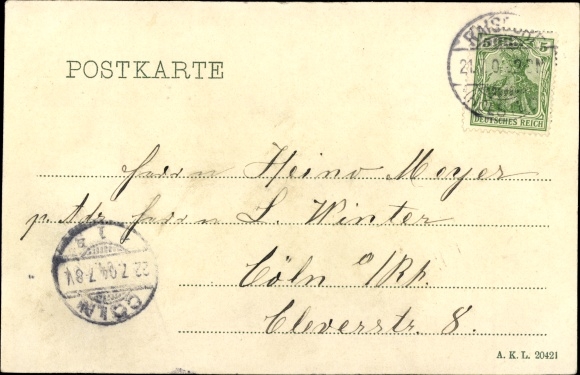 POSTKARTE
5
DEUTSCHES REICH
Herrn Heino Meyer
p. Adr. Herrn L. Winter
Cöln a/Rh.
Cleverstr. 8.
CÖLN
22.7.04.7-8V.
A. K. L. 20421